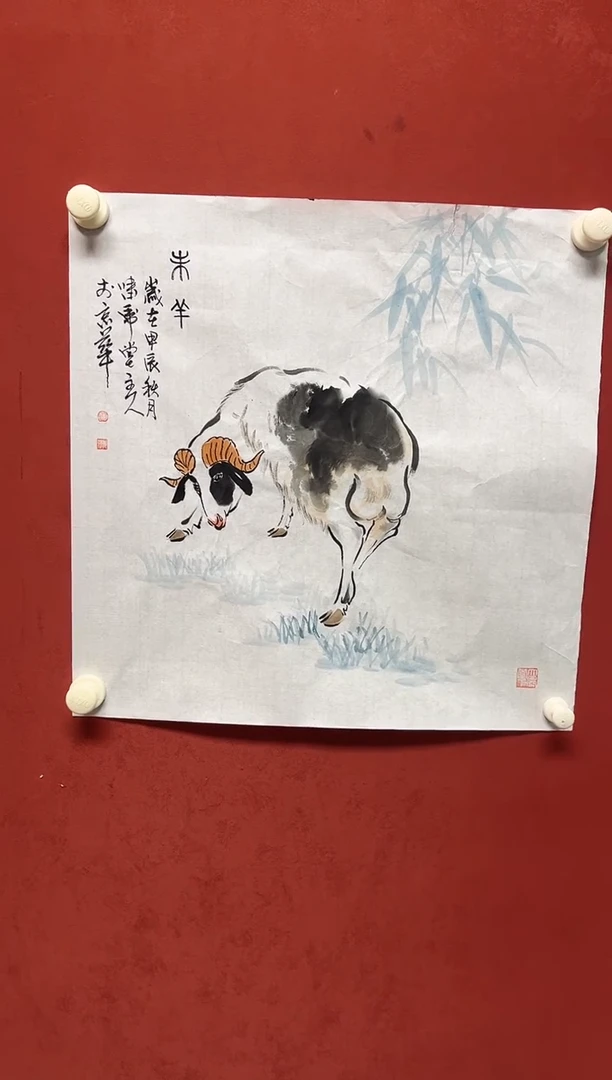 未羊
歲在甲辰秋月
啸霸堂主人
於京華